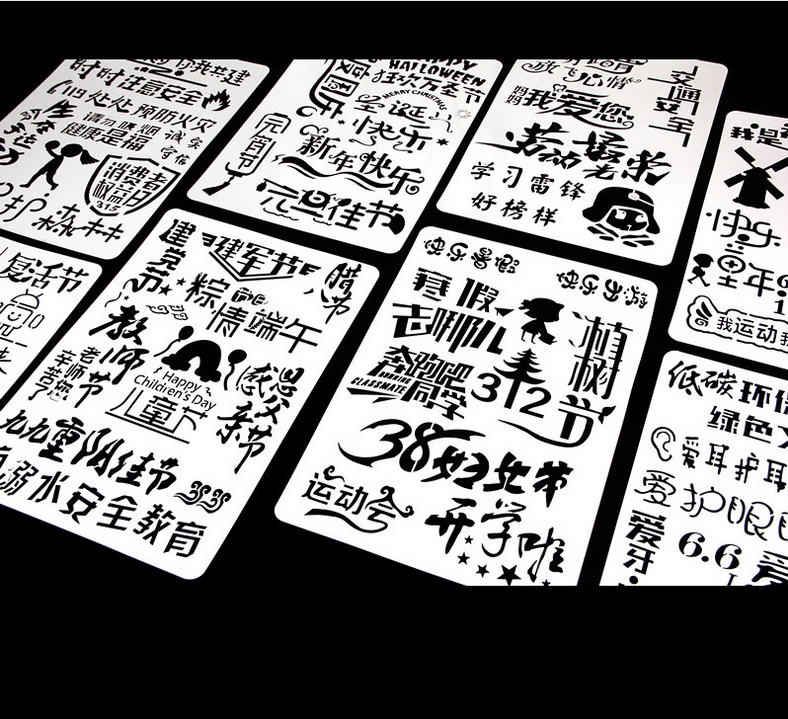 你我共建
时时注意安全
处处预防火灾
请勿吸烟
健康是福
诚实
守信
消费者
权益日
3.15
HAPPY
HALLOWEEN
狂欢万圣节
MERRY CHRISTMAS
圣诞
快乐
元宵节
新年快乐
元旦佳节
放飞心情
妈妈我爱您
交通安全
劳动最光荣
学习雷锋
好榜样
我是
快乐
童年
6
1
我运动我
复活节
建党节
建军节
腊八节
粽情端午
教师节
老师您辛苦了
Happy
Children's Day
儿童节
感恩父亲节
九九重阳佳节
防溺水安全教育
快乐暑假
快乐出游
寒假
去哪儿
植树节
312
奔跑吧
RUNNING
CLASSMATE
同学
38妇女节
运动会
开学啦
低碳环保
绿色
爱耳护耳
爱护眼
爱牙
6.6
爱